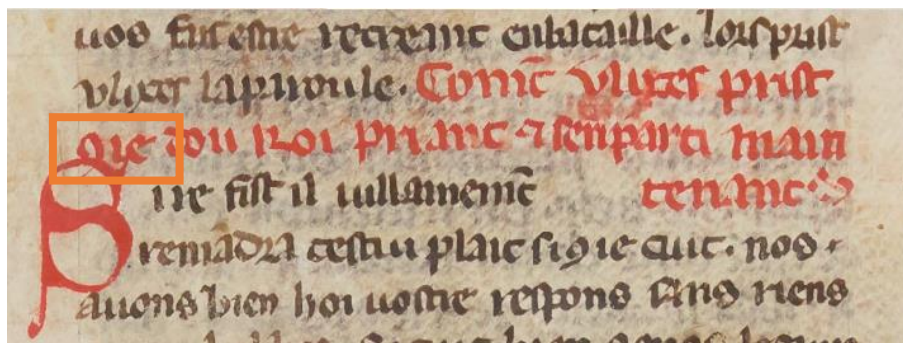 uos fust estre recreant enbataille. lors prist
vlixes laparoule. Coment vlixes prist
gie dou Roi priant ⁊ senparti main
ne fist il nullament tenant
remadra cestui plait si ie cuit. nos
auons bien hoi uostre respons sens riens